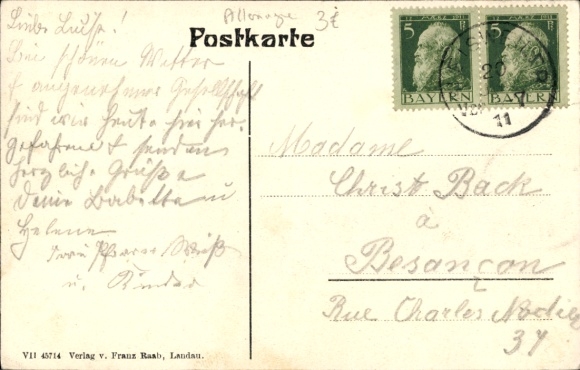 Allemagne
3f
Postkarte
Liebe Luise!
Bei schönem Wetter
& angenehmer Gesellschaft
sind wir heute hier her
gefahren & senden
herzliche Grüße
Deine Babette u
Helene
Frau Pfarrer Weiß
u. Kinder
5 BAYERN
5 BAYERN
20
11
Madame
Christ Back
à
Besançon
Rue Charles Nodier
34
VII 45714 Verlag v. Franz Raab, Landau.